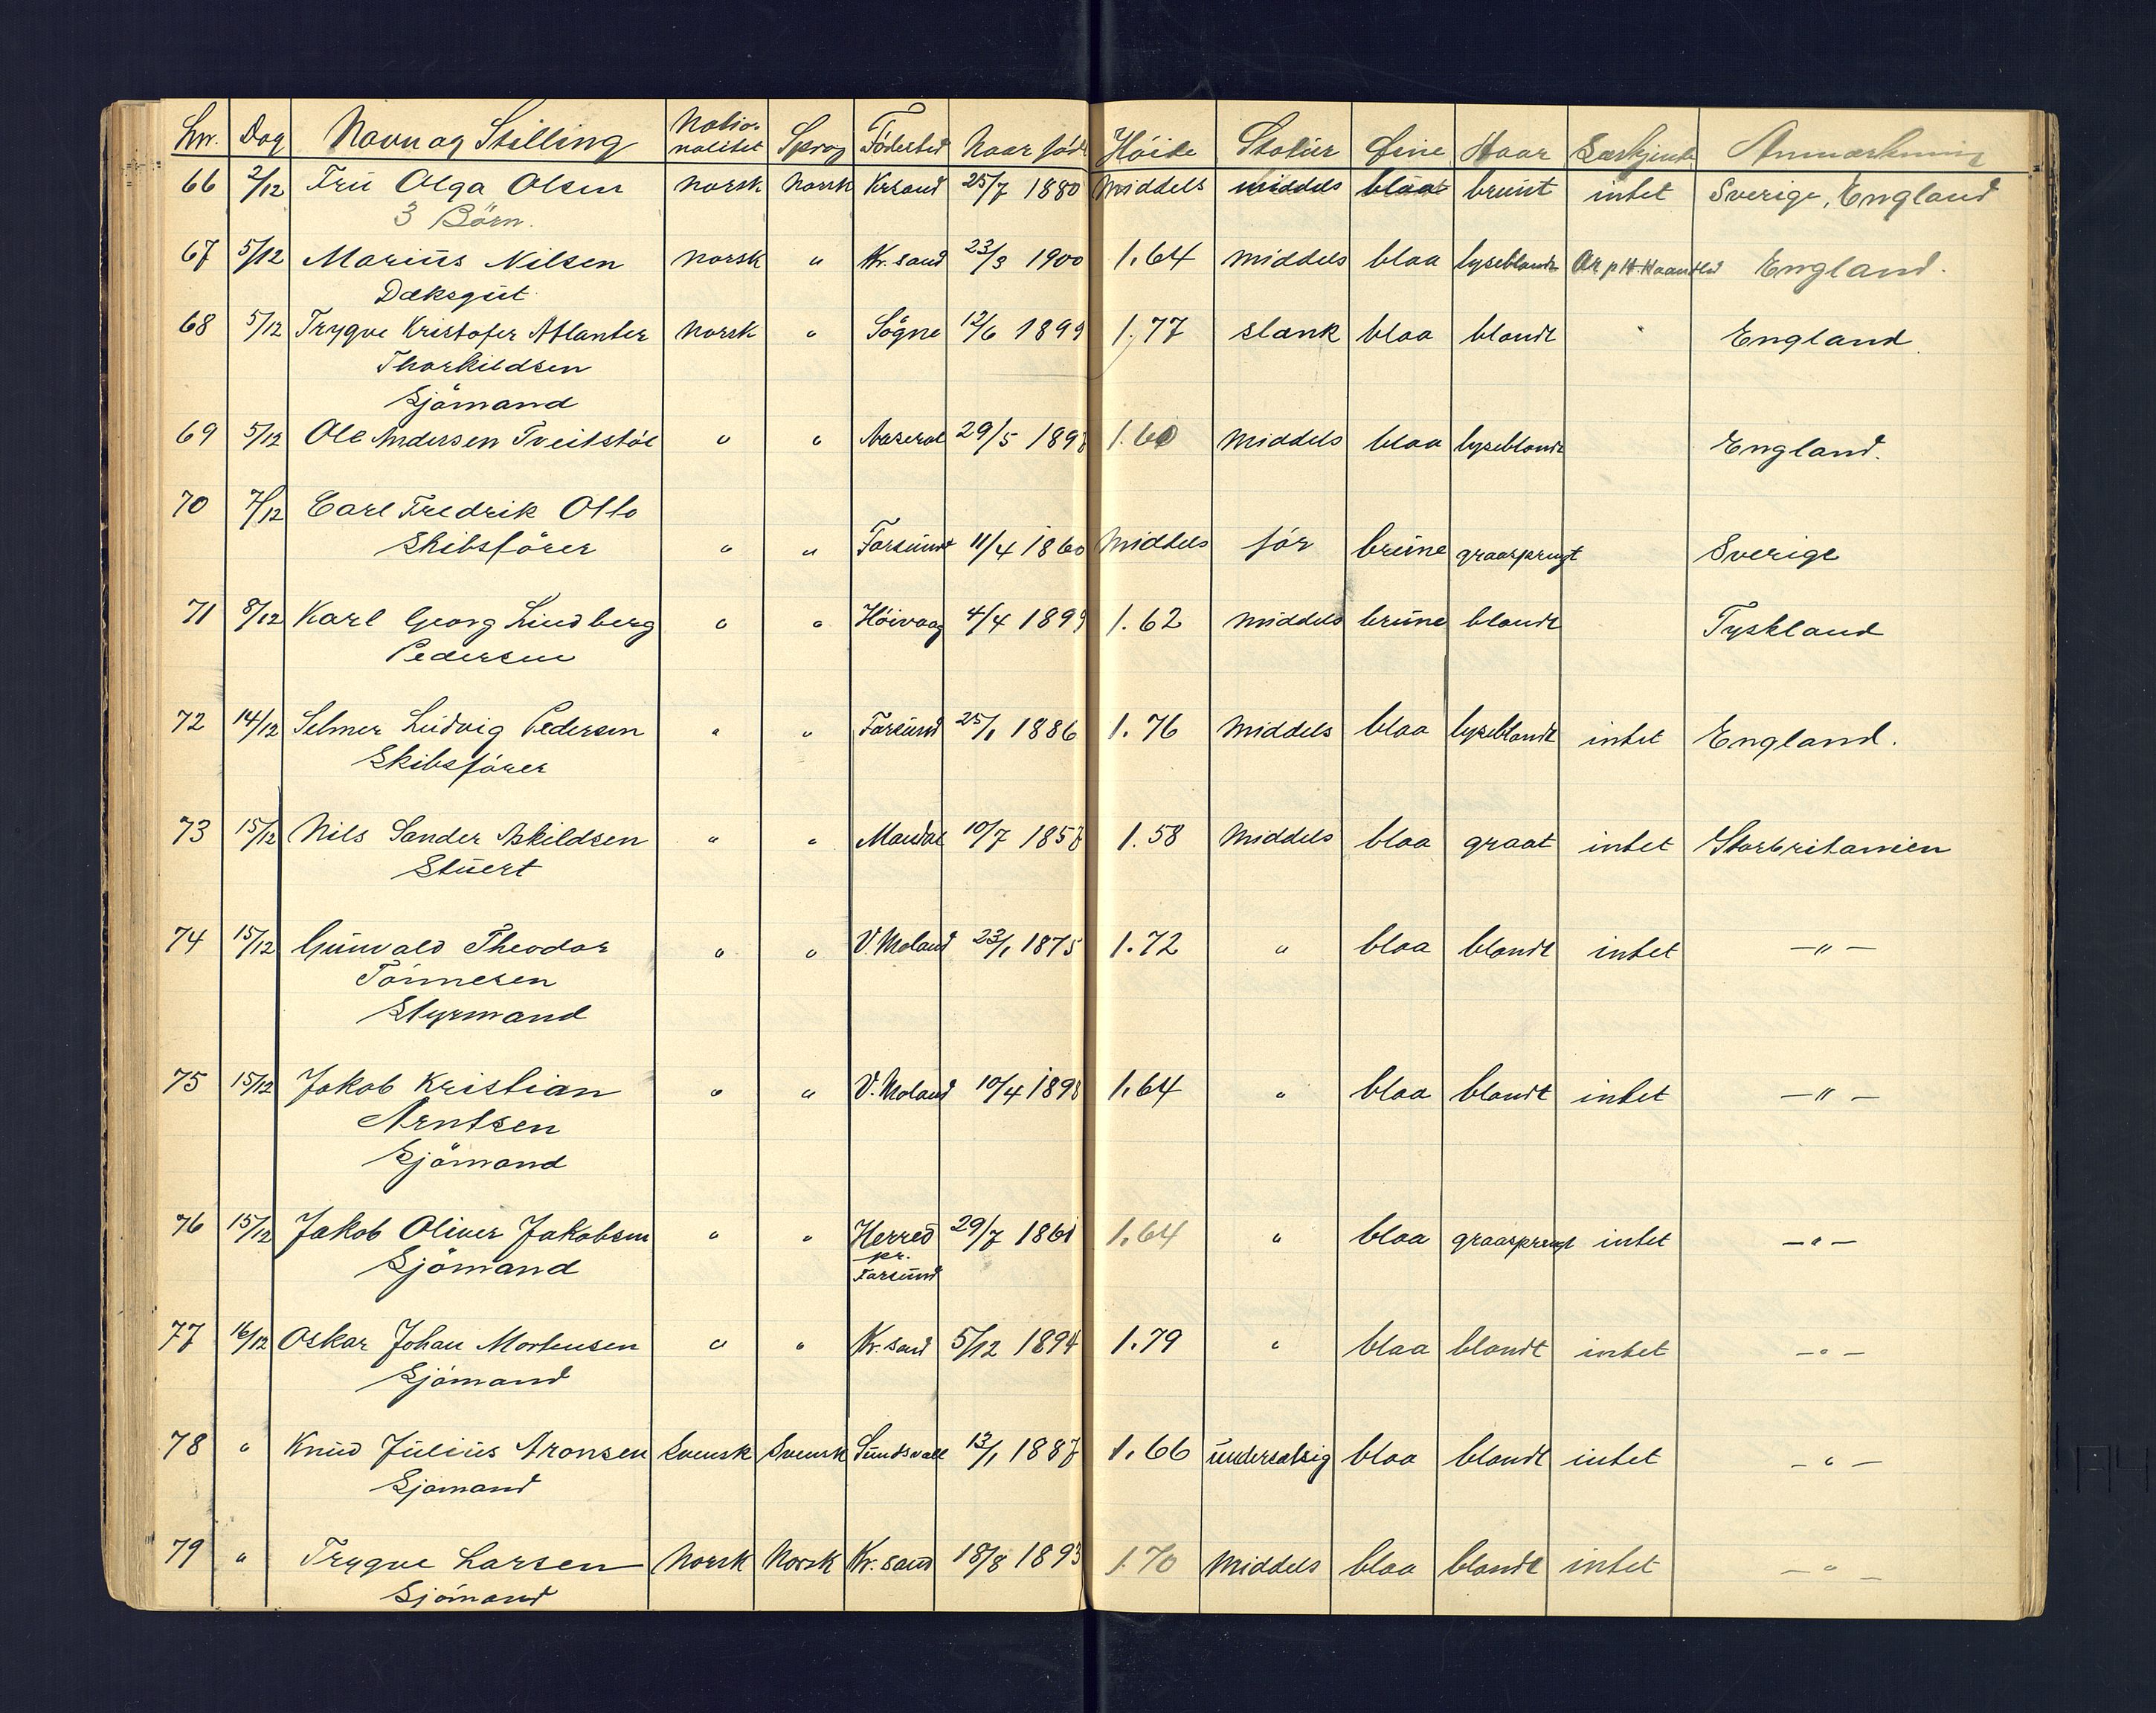 Lnr. Dag Navn og Stilling Natio- nalitet Sprog Födested Naar född Höide Statür Öine Haar Særkjende Anmærkning
66 2/12 Frü Olga Olsen norsk norsk Krsand 25/7 1880 Middels middels blaa brünt intet Sverige, England
3 Börn.
67 5/12 Mariüs Nilsen norsk " Kr.sand 23/3 1900 1.64 middels blaa lyseblondt Ar p H. Haandled England.
Dæksgüt
68 5/12 Trygve Kristofer Atlanter norsk " Sögne 12/6 1899 1.77 slank blaa blondt " England.
Thorkildsen
Sjömand
69 5/12 Ole Andersen Tveitstöl " " Aaseral 29/5 1898 1.60 middels blaa lyseblondt England.
70 7/12 Carl Fredrik Otto
Skibsförer " " Farsünd 11/4 1860 Middelsför brüne graasprengt Sverige
71 8/12 Karl Georg Lindberg " " Höivaag 4/4 1899 1.62 middels brüne blondt Tyskland
Pedersen
72 14/12 Selmer Lüdvig Pedersen " " Farsünd 25/1 1886 1.76 middels blaa lyseblondt intet England.
Skibsförer
73 15/12 Nils Sander Askildsen " " Mandal 10/7 1858 1.58 middels blaa graat intet Storbritanien
Stüert
74 15/12 Günvald Theodor " " V. Moland 23/1 1875 1.72 " blaa blondt intet — " —
Tönnesen
Styrmand
75 15/12 Jakob Kristian " " V. Moland 10/4 1898 1.64 " blaa blondt intet — " —
Arntsen
Sjömand
76 15/12 Jakob Oliver Jakobsen " " Herred 29/7 1861 1.64 " blaa graasprengt intet — " —
Sjömand pr.
Farsünd
77 16/12 Oskar Johan Mortensen " " Kr.sand 5/12 1894 1.79 " blaa blondt intet — " —
Sjömand
78 " Knüd Jüliüs Aronsen Svensk Svensk Sündsvall 13/1 1887 1.66 ündersatsig blaa blondt intet — " —
Sjömand
79 " Trygve Larsen Norsk Norsk Kr.sand 18/8 1893 1.70 Middels blaa blondt intet — " —
Sjömand